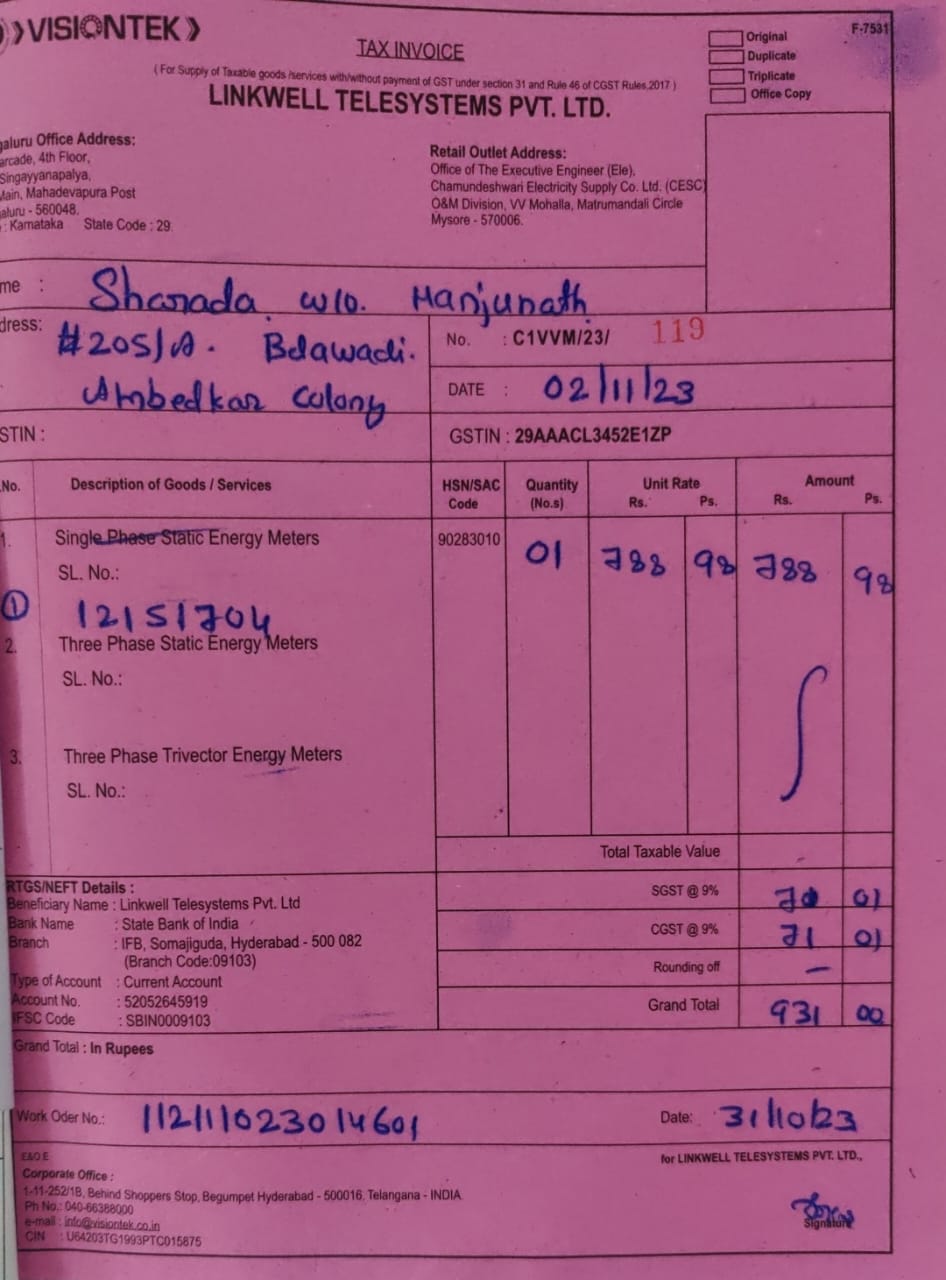 VISIONTEK
F-7531
TAX INVOICE
Original
Duplicate
Triplicate
Office Copy
( For Supply of Taxable goods /services with/without payment of GST under section 31 and Rule 46 of CGST Rules,2017 )
LINKWELL TELESYSTEMS PVT. LTD.
galuru Office Address:
arcade, 4th Floor,
Singayyanapalya,
Main, Mahadevapura Post
galuru - 560048.
: Karnataka State Code : 29.
Retail Outlet Address:
Office of The Executive Engineer (Ele),
Chamundeshwari Electricity Supply Co. Ltd. (CESC)
O&M Division, VV Mohalla, Matrumandali Circle
Mysore - 570006.
me : Sharada w/o. Manjunath
dress: #205/A. Belawadi.
Ambedkar Colony
No. : C1VVM/23/ 119
DATE : 02/11/23
STIN :
GSTIN : 29AAACL3452E1ZP
.No. Description of Goods / Services HSN/SAC Code Quantity (No.s) Unit Rate Rs. Ps. Amount Rs. Ps.
1. Single Phase Static Energy Meters 90283010 01 788 98 788 98
SL. No.:
1 12151704
2. Three Phase Static Energy Meters
SL. No.:
3. Three Phase Trivector Energy Meters
SL. No.:
Total Taxable Value
RTGS/NEFT Details :
Beneficiary Name : Linkwell Telesystems Pvt. Ltd
Bank Name : State Bank of India
Branch : IFB, Somajiguda, Hyderabad - 500 082
(Branch Code:09103)
Type of Account : Current Account
Account No. : 52052645919
IFSC Code : SBIN0009103
SGST @ 9% 01
CGST @ 9% 71 01
Rounding off —
Grand Total 931 00
Grand Total : In Rupees
Work Oder No.: 112111023014601
Date: 31/10/23
E&O.E
for LINKWELL TELESYSTEMS PVT. LTD.,
Corporate Office :
1-11-252/1B, Behind Shoppers Stop, Begumpet Hyderabad - 500016, Telangana - INDIA.
Ph No.: 040-66388000
e-mail : info@visiontek.co.in
CIN : U64203TG1993PTC015875
Signature